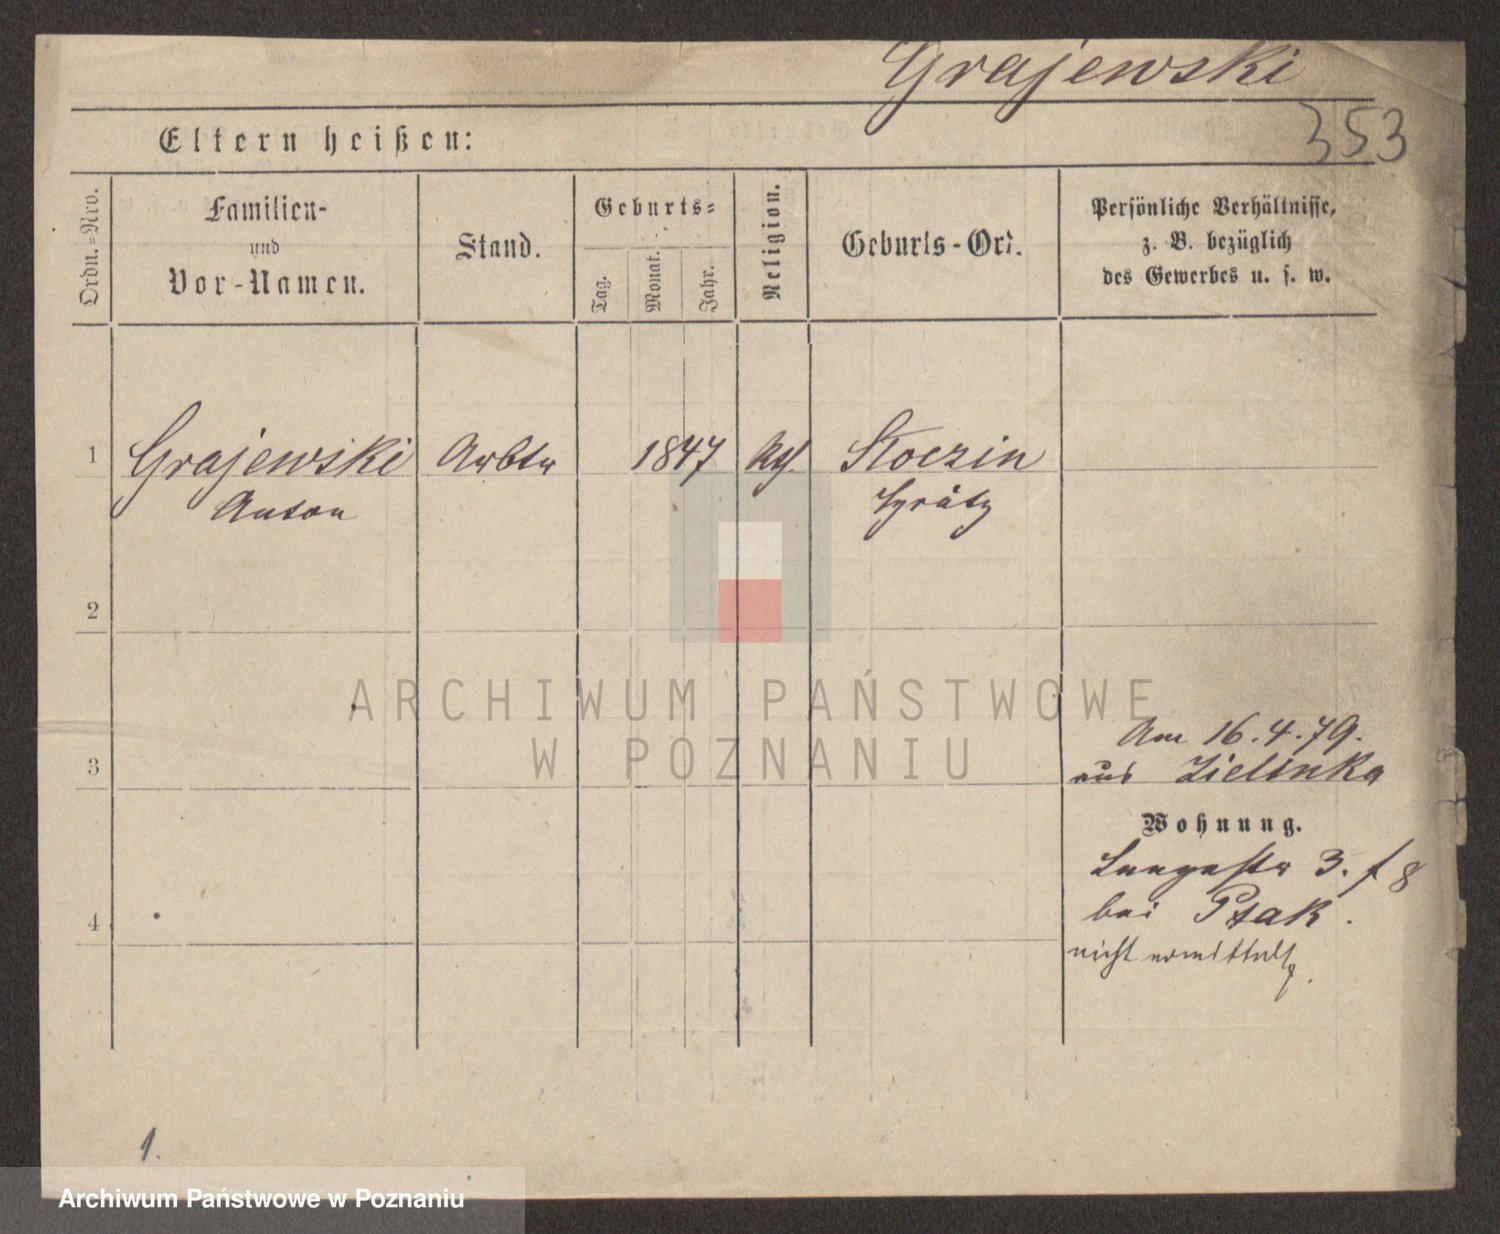 Grajewski
353
Eltern heißen:
Ordn.=Nro.
Familien-
und
Vor-Namen.
Stand.
Geburts=
Tag.
Monat.
Jahr.
Religion.
Geburts-Ort.
Persönliche Verhältnisse,
z. B. bezüglich
des Gewerbes u. s. w.
1
Grajewski
Anton
Arbtr
1847
Kth
Stoczin
Grätz
2
3
Am 16.4.79.
aus Zielinka
Wohnung.
Langestr 3. f 8
bei Ptak.
4
nicht ermittelt
1.
ARCHIWUM PAŃSTWOWE
W POZNANIU
Archiwum Państwowe w Poznaniu